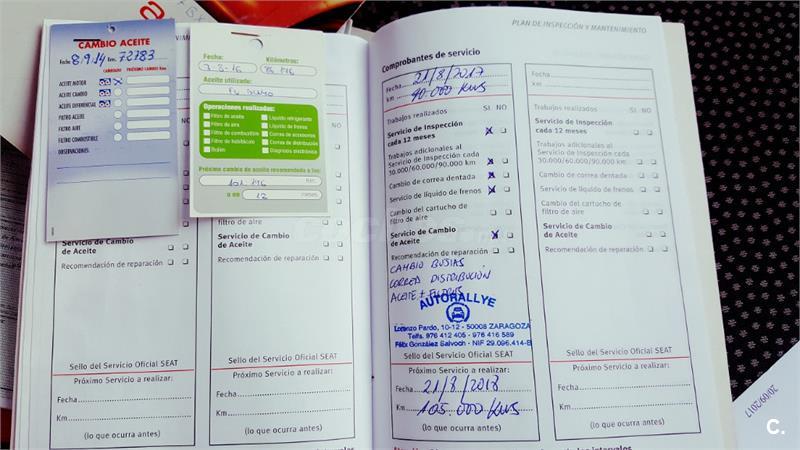 CAMBIO ACEITE
Fecha 8.9.14 Kms. 72783
CAMBIADO PRÓXIMO CAMBIO Kms.
ACEITE MOTOR X
ACEITE CAMBIO
ACEITE DIFERENCIAL
FILTRO ACEITE
FILTRO AIRE
FILTRO COMBUSTIBLE
OBSERVACIONES:
Fecha: Kilómetros:
Aceite utilizado:
Operaciones realizadas:
Filtro de aceite Líquido refrigerante
Filtro de aire Líquido de frenos
Filtro de combustible Correa de accesorios
Filtro de habitáculo Correa de distribución
Bujías Diagnosis electrónica
Próximo cambio de aceite recomendado a los:
Km.
o en 12 meses
filtro de aire
Servicio de Cambio
de Aceite
Recomendación de reparación
Sello del Servicio Oficial SEAT
Próximo Servicio a realizar:
Fecha
Km
(lo que ocurra antes)
filtro de aire
Servicio de Cambio
de Aceite
Recomendación de reparación
Sello del Servicio Oficial SEAT
Próximo Servicio a realizar:
Fecha
Km
(lo que ocurra antes)
PLAN DE INSPECCIÓN Y MANTENIMIENTO
Comprobantes de servicio
Fecha 21/8/2017
Km 90.000 KMS
Trabajos realizados SI NO
Servicio de Inspección
cada 12 meses X
Trabajos adicionales al
Servicio de Inspección cada
30.000/60.000/90.000 km X
Cambio de correa dentada X
Servicio de líquido de frenos X
Cambio del cartucho de filtro
de aire
Servicio de Cambio
de Aceite X
Recomendación de reparación
CAMBIO BUJIAS
CORREA DISTRIBUCIÓN
ACEITE + FILTROS
AUTORALLYE
Lorenzo Pardo, 10-12 - 50008 ZARAGOZA
Telfs. 976 412 405 - 976 416 589
Félix González Salvoch - NIF 29.096.414-B
Sello del Servicio Oficial SEAT
Próximo Servicio a realizar:
Fecha 21/8/2018
Km 105.000 KMS
(lo que ocurra antes)
Fecha
Km
Trabajos realizados SI NO
Servicio de Inspección
cada 12 meses
Trabajos adicionales al
Servicio de Inspección cada
30.000/60.000/90.000 km
Cambio de correa dentada
Servicio de líquido de frenos
Cambio del cartucho de
filtro de aire
Servicio de Cambio
de Aceite
Recomendación de reparación
Sello del Servicio Oficial SEAT
Próximo Servicio a realizar:
Fecha
Km
(lo que ocurra antes)
20/09/2017
C.